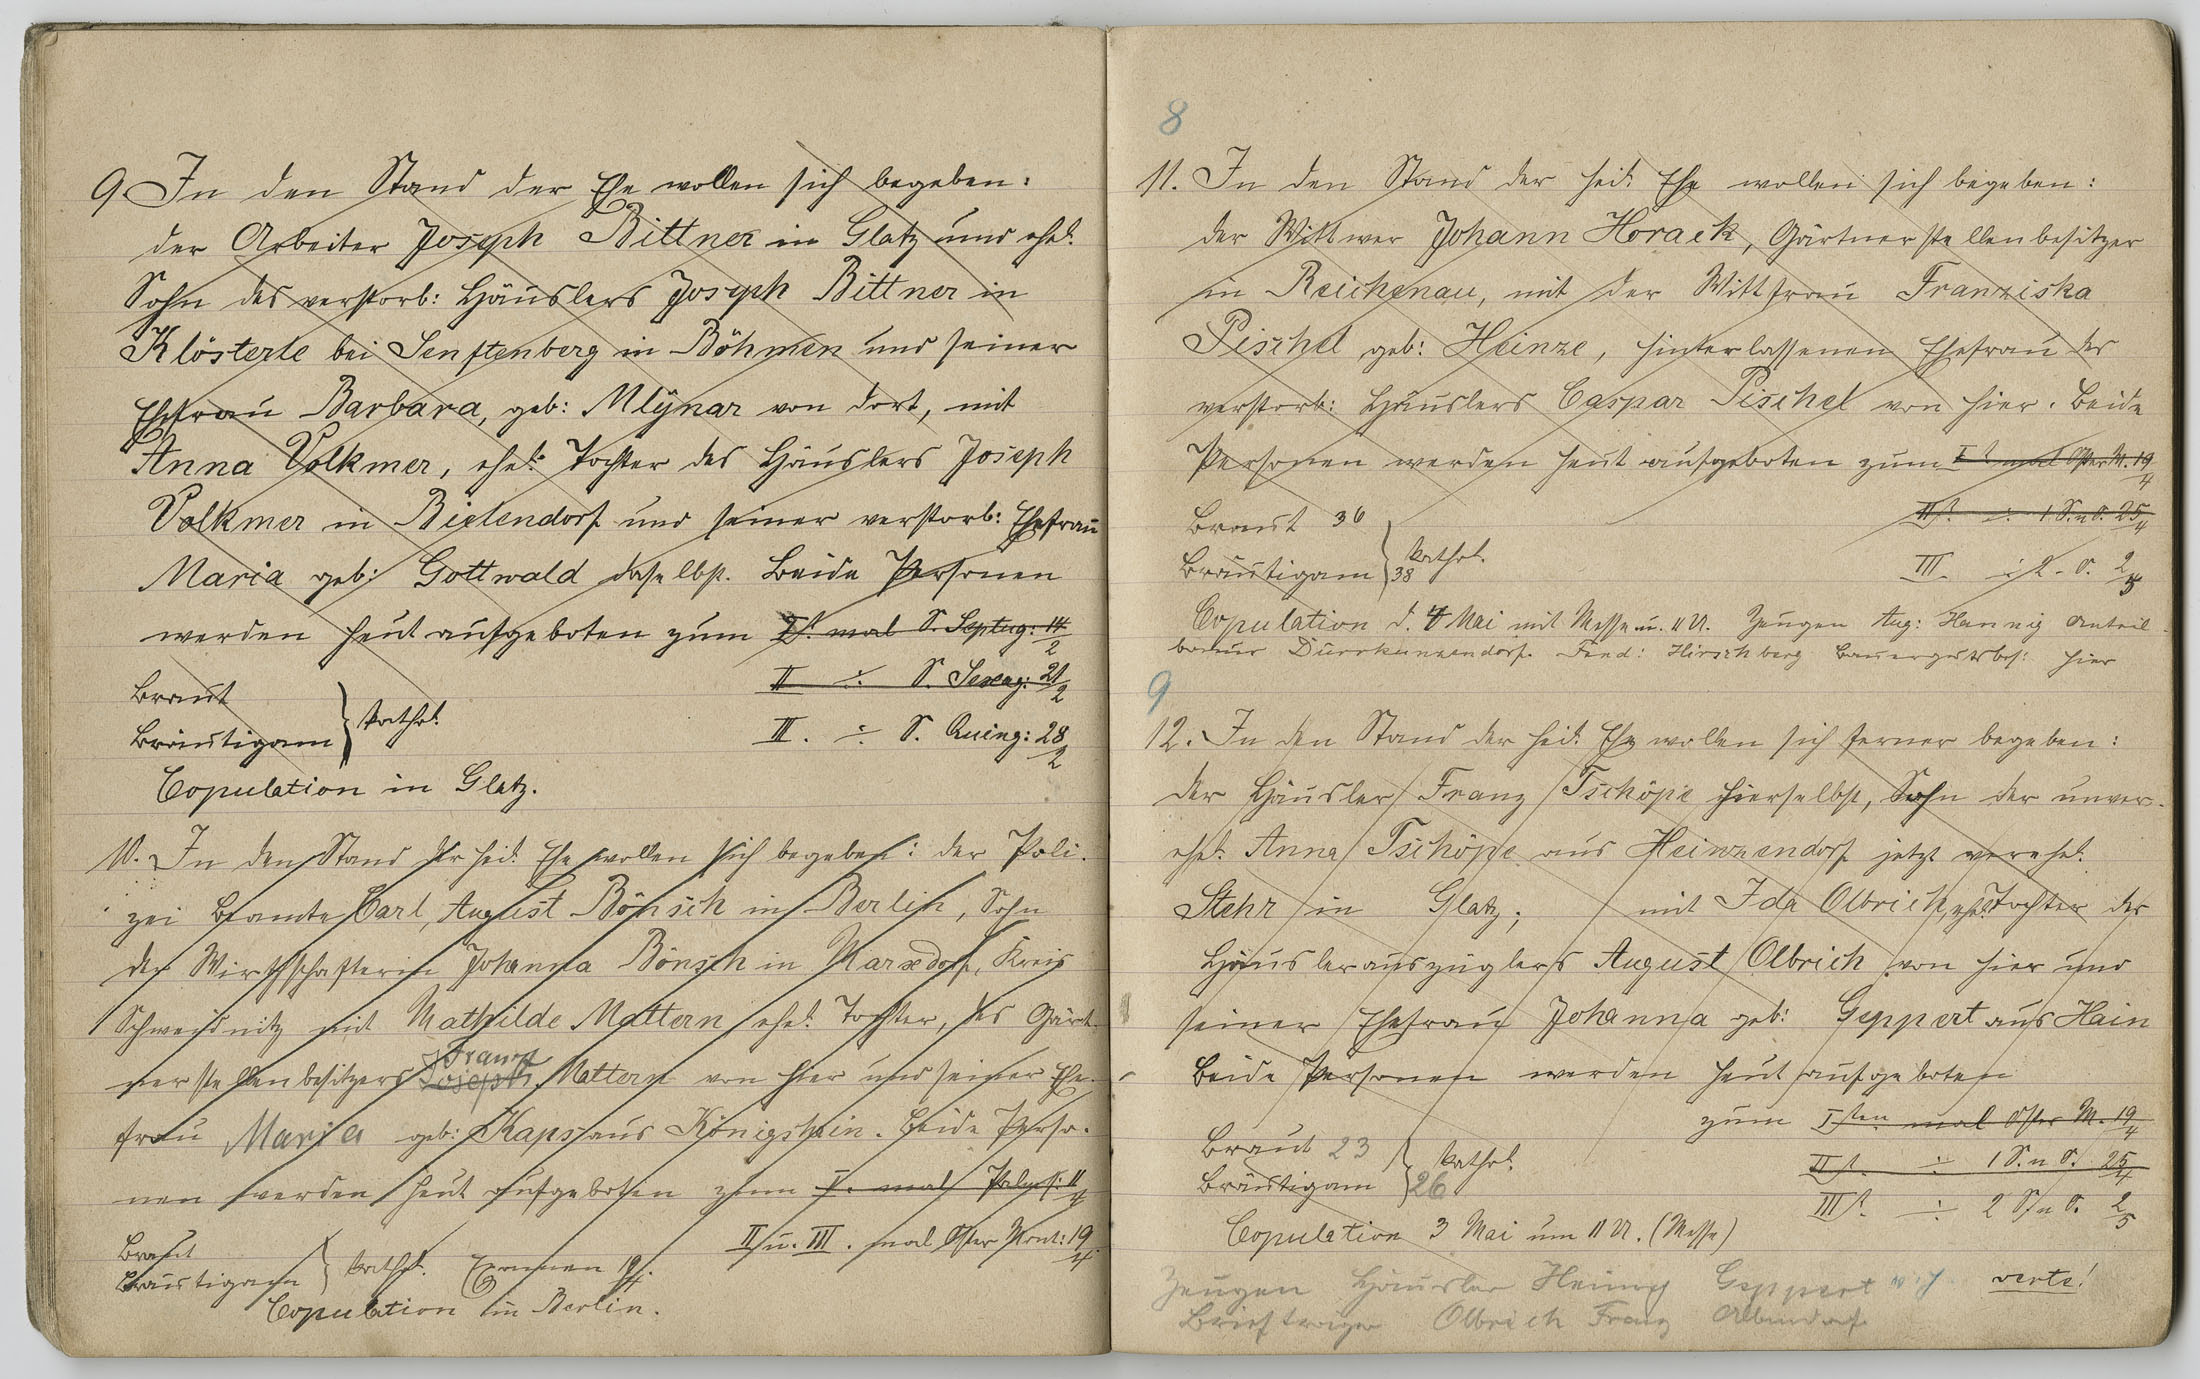 9. In den Stand der Ehe wollen sich begeben:
der Arbeiter Joseph Bittner in Glatz und ehel.
Sohn des verstorb: Häuslers Joseph Bittner in
Klösterle bei Senftenberg in Böhmen und seiner
Ehefrau Barbara, geb: Mlýnar von dort, mit
Anna Volkmer, ehel: Tochter des Häuslers Joseph
Volkmer in Bielendorf und seiner verstorb: Ehefrau
Maria geb: Gottwald daselbst. Beide Personen
werden heut aufgeboten zum I t. mal S. Septug: 14/2
II ÷ S. Sexag: 21/2
Braut
Bräutigam } kathol.
III. ÷ S. Quing: 28/2
Copulation in Glatz.
10. In den Stand der heil. Ehe wollen sich begeben: der Poli-
zei Beamte Carl, August Bönsch in Berlin, Sohn
der Wirthschafterin Johanna Bönsch in Marxdorf, Kreis
Schweidnitz mit Mathilde Mattern ehel. Tochter, des Gärt-
nerstellenbesitzers Joseph Franz Mattern von hier und seiner Ehe-
frau Maria geb: Kaps aus Königshain. Beide Perso-
nen werden heut aufgeboten zum I. mal Palms: 11/4
II u. III. mal Oster Mont: 19/4.
Braut
Bräutigam } kathol. Examen 19/4.
Copulation in Berlin.
8
11. In den Stand der heil: Ehe wollen sich begeben:
der Wittwer Johann Horack, Gärtnerstellenbesitzer
in Reichenau, mit der Wittfrau Franziska
Pischel geb: Heinze, hinterlassenen Ehefrau des
verstorb: Häuslers Caspar Pischel von hier. Beide
Personen werden heut aufgeboten zum I t mal Oster M. 19/4
II t. ÷ 1 S. n O. 25/4
Braut 36
Bräutigam 38 } kathol.
III. ÷ 2. O. 2/5
Copulation d. 4 Mai mit Messe u. 11 U. Zeugen Aug: Hannig Anteil-
bauer Dürrkunzendorf. Ferd: Hirschberg Bauergutsbes: hier
9
12. In den Stand der heil. Ehe wollen sich ferner begeben:
der Häusler Franz Tschöpe hierselbst, Sohn der unver-
ehel. Anna Tschöpe aus Heinzendorf jetzt verehel.
Stehr in Glatz; mit Ida Olbrich, ehel. Tochter des
Häuslerauszüglers August Olbrich von hier und
seiner Ehefrau Johanna geb: Geppert aus Hain
Beide Personen werden heut aufgeboten
zum I ten mal Oster M. 19/4
Braut 23
Bräutigam 26 } kathol.
II t. ÷ 1 S. n O. 25/4
III t. ÷ 2 S n O. 2/5
Copulation 3 Mai um 11 U. (Messe)
Zeugen Häusler Heinrg Geppert v. h verte!
Briefträger Olbrich Franz Albendorf